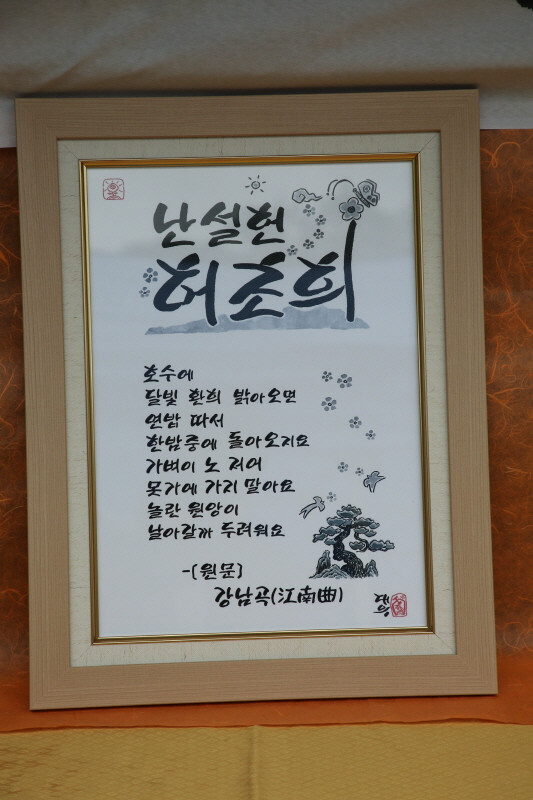 난설헌
허초희
호수에
달빛 환희 밝아오면
연밥 따서
한밤중에 돌아오지요
가벼이 노 저어
못가에 가지 말아요
놀란 원앙이
날아갈까 두려워요
-[원문]
강남곡(江南曲)